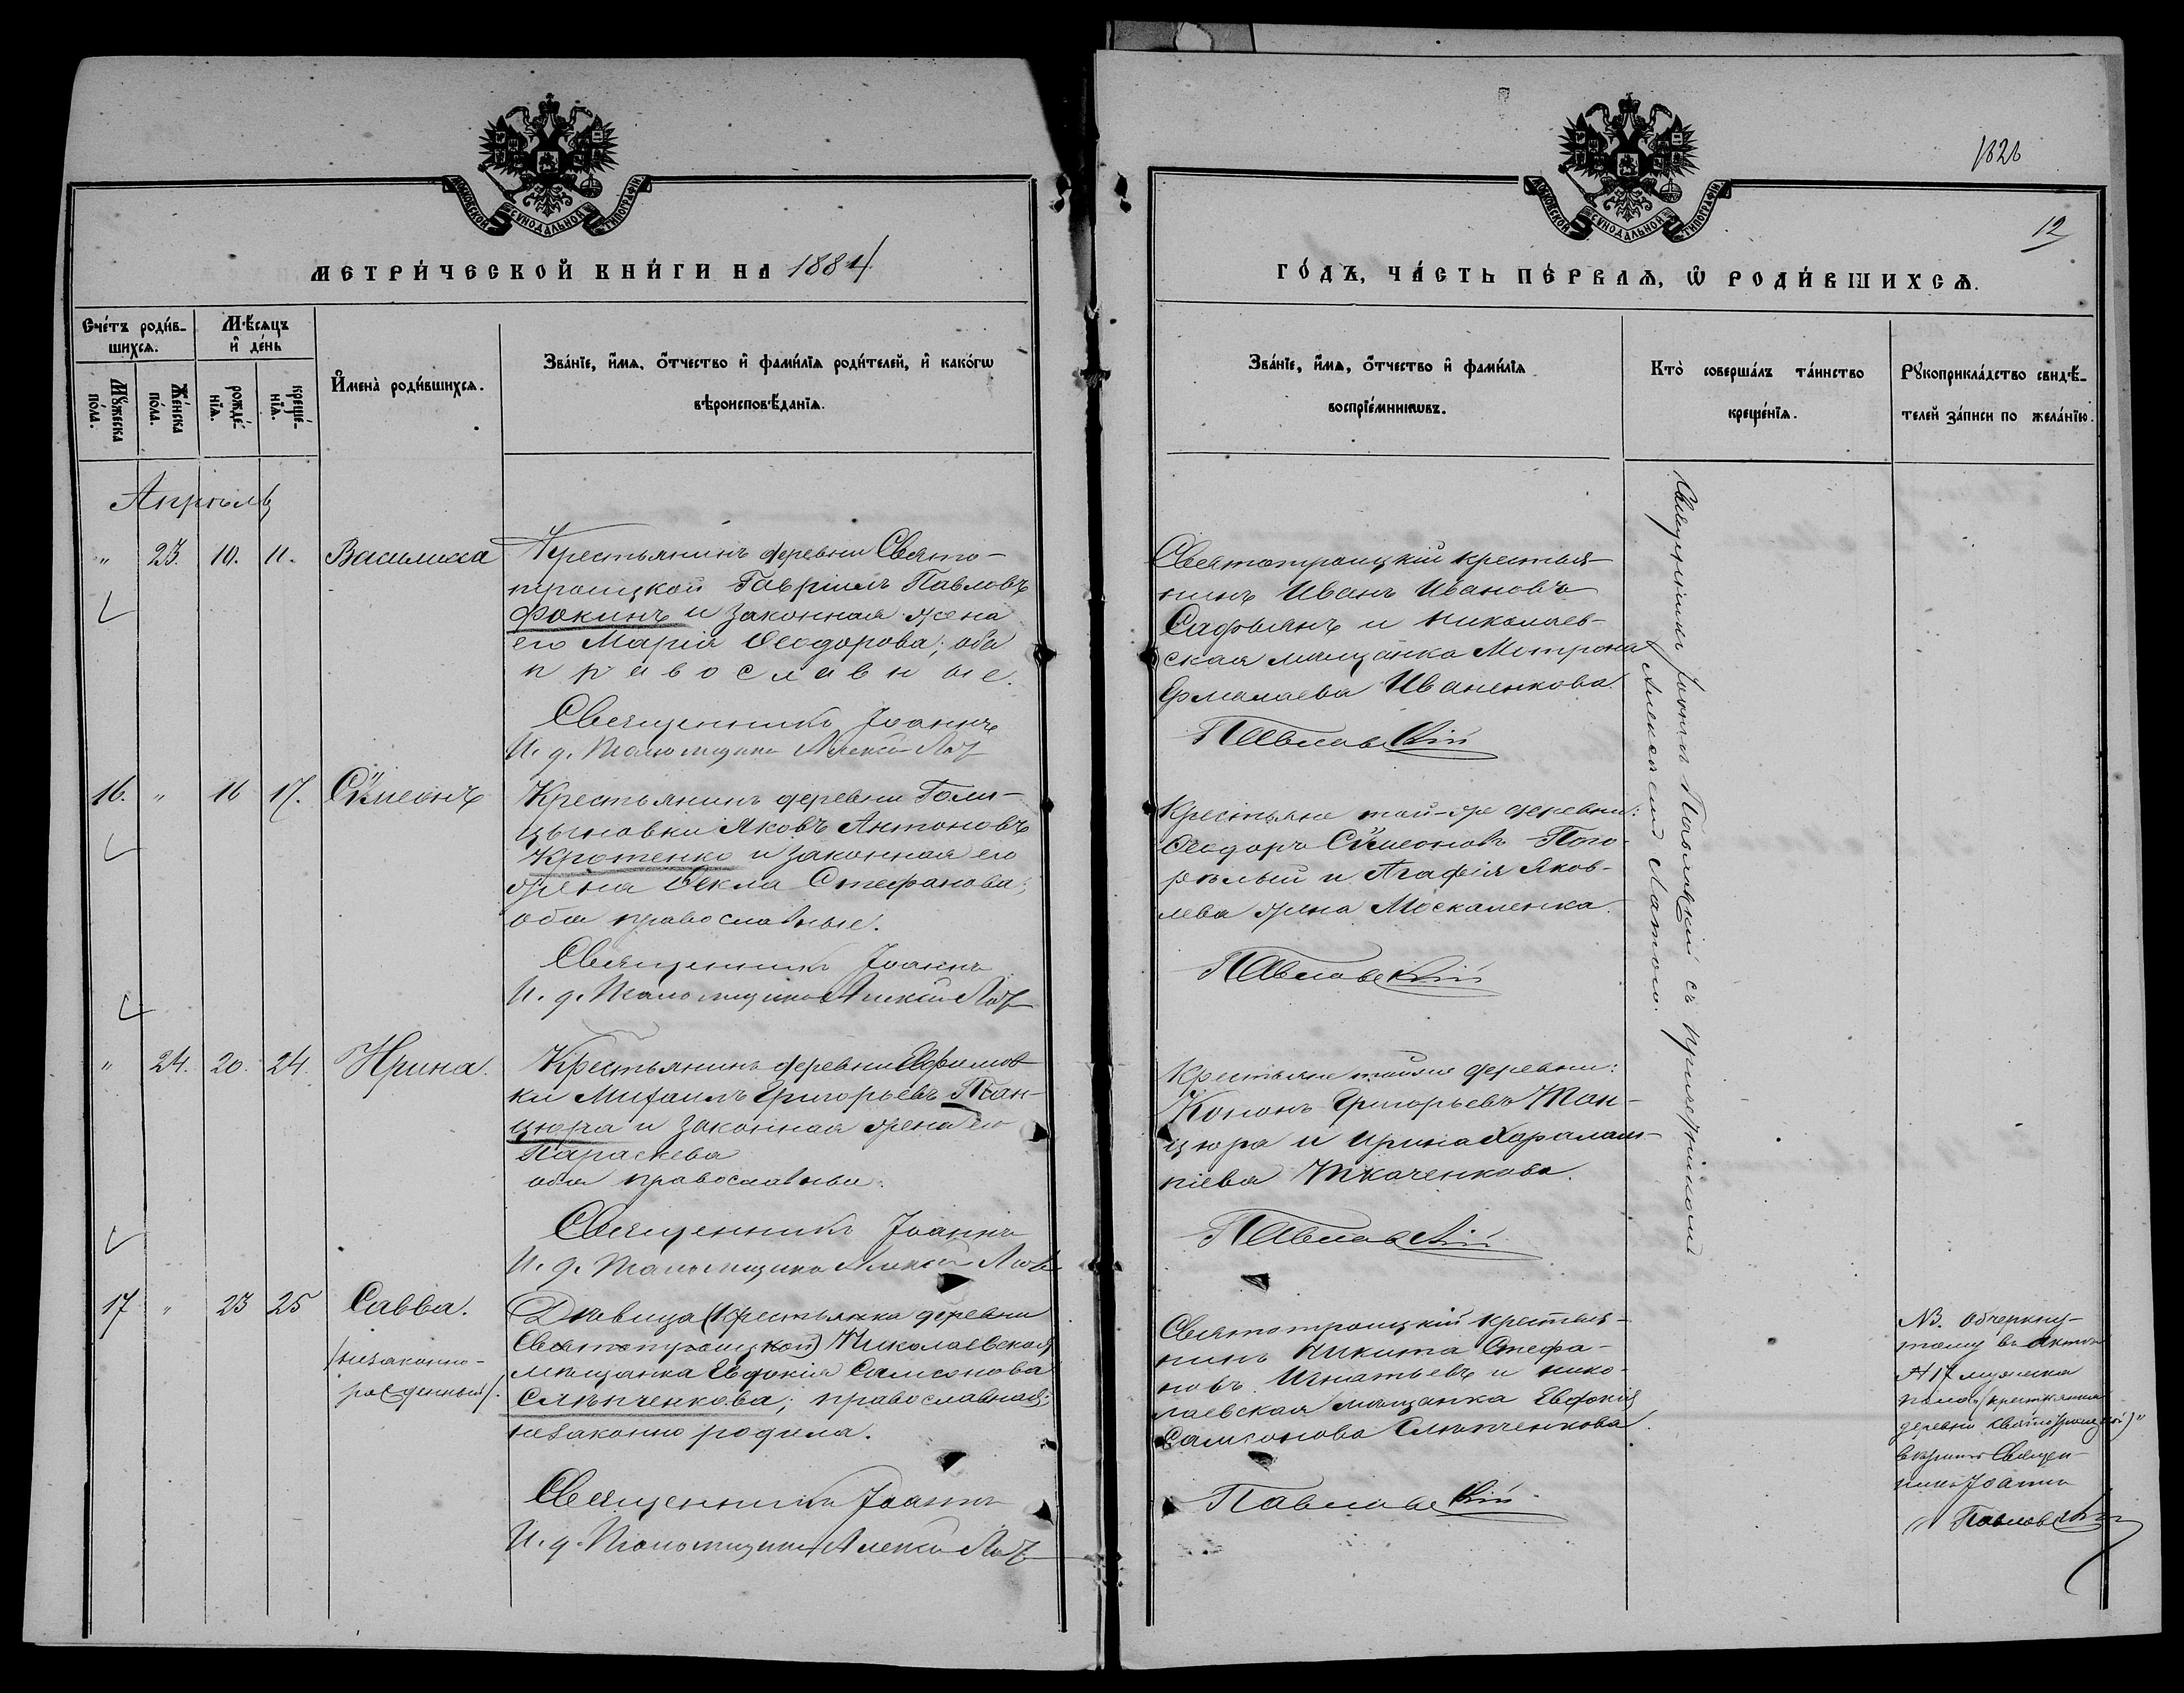 МОСКОВСКОЙ СѴНОДАЛЬНОЙ ТИПОГРАФІИ
МЕТРИ́ЧЕСКОЙ КНИ́ГИ НА 1884
Сче́тъ роди́в-
шихсѧ.
Мꙋ́жеска
по́ла.
Же́нска
по́ла.
Мѣ́сѧцъ
и҆ де́нь
рожде́-
нїѧ.
креще́-
нїѧ.
И҆мена̀ роди́вшихсѧ.
Зва́нїе, и҆́мѧ, ѻ҆́тчество и҆ фамѝлїѧ роди́телей, и҆ како́гѡ
вѣроисповѣ́данїѧ.
Апрѣль
" 23. 10. 11. Василисса
Крестьянинъ деревни Свято-
троицкой Гавріилъ Павловъ
Фокинъ и законная жена
его Марія Ѳеодорова; оба
православные.
Священникъ Іоаннъ
И. д. Псаломщика Алексій
16. " 16 17. Сѷмеонъ
Крестьянинъ деревни Голи-
цыновки Яковъ Антоновъ
Кротенко и законная его
жена Ѳекла Стефанова;
оба православные.
Священникъ Іоаннъ
И. д. Псаломщика Алексій
" 24. 20. 24. Ирина.
Крестьянинъ деревни Ефимов-
ки Михаилъ Григорьевъ Ман-
цюра и законная жена его
Параскева
оба православные.
Священникъ Іоаннъ
И. д. Псаломщика Алексій
17 " 23 25 Савва.
(незаконно-
рожденный).
Дѣвица (крестьянка деревни
Святотроицкой) Николаевская
мѣщанка Евдокія Самсонова
Слѣпченкова; православная;
незаконно родила.
Священникъ Іоаннъ
И. д. Псаломщика Алексій
МОСКОВСКОЙ СѴНОДАЛЬНОЙ ТИПОГРАФІИ
182
12
ГО́ДЪ, ЧА́СТЬ ПЕ́РВАѦ, Ѡ҆ РОДИ́ВШИХСѦ.
Зва́нїе, и҆́мѧ, ѻ҆́тчество и҆ фамѝлїѧ
воспрїе́мникѡвъ.
Кто̀ соверша́лъ та́инство
креще́нїѧ.
Рꙋкоприкла́дство свидѣ́-
телей за́писи по жела́нїю.
Святотроицкій крестья-
нинъ Иванъ Ивановъ
Сафьянъ и николаев-
ская мѣщанка Матрона
Ермолаева Иваненкова.
Павловскій
Крестьяне той-же деревни:
Ѳеодоръ Сѷмеоновъ Пого-
рѣлый и Агафія Яков-
лева жена Москаленка.
Павловскій
Крестьяне тойже деревни:
Кононъ Григорьевъ Ман-
цюра и Ирина Харалам-
піева Ткаченкова.
Павловскій
Святотроицкій крестья-
нинъ Никита Стефа-
новъ Игнатьевъ и нико-
лаевская мѣщанка Евдокія
Самсонова Слѣпченкова.
Павловскій
Священникъ Іоаннъ Павловскій съ причетникомъ
Алексѣемъ
NB. Обчеркну-
тому въ актѣ
№ 17 мужеска
пола (крестьянка
деревни Святотроицкой)"
Священ-
никъ Іоаннъ
Павловскій